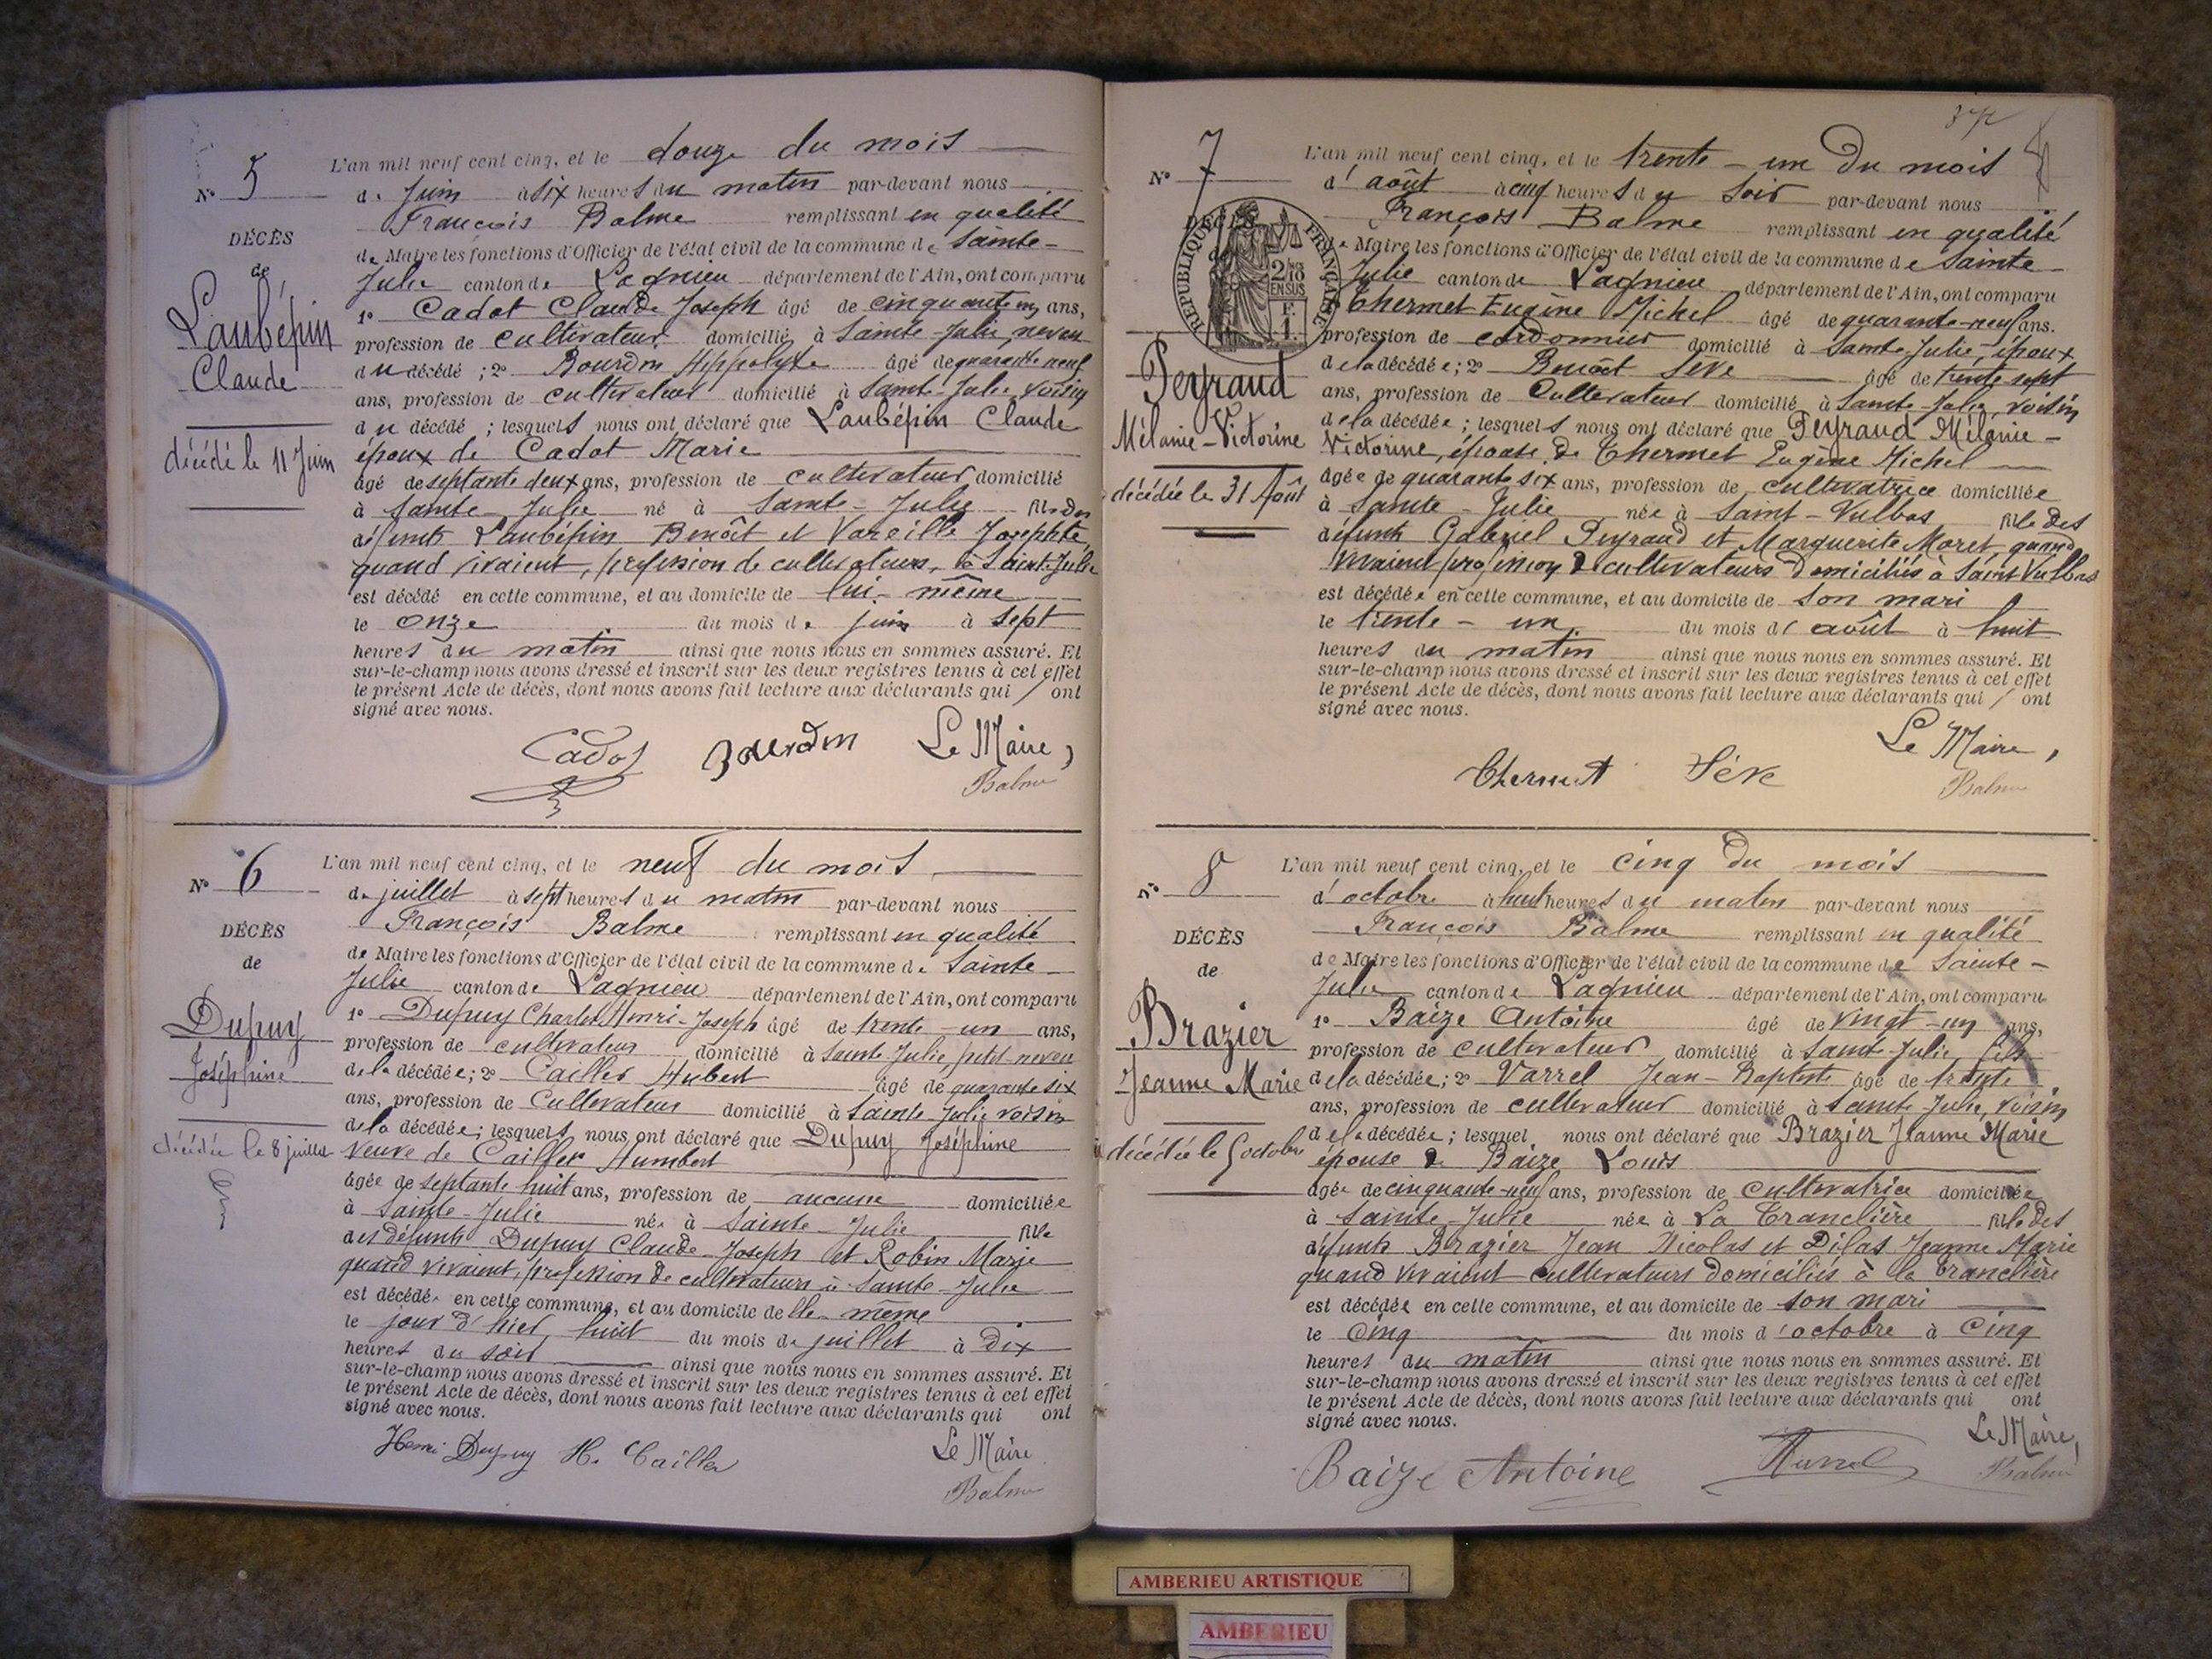 N° 5
DÉCÈS
de
Laubépin
Claude
décédé le 11 Juin
L'an mil neuf cent cinq, et le douze du mois
de Juin à six heures du matin par-devant nous
François Balme remplissant en qualité
de Maire les fonctions d'Officier de l'état civil de la commune de Sainte-
Julie canton de Lagnieu département de l'Ain, ont comparu
1° Cadot Claude Joseph âgé de cinquante ans,
profession de cultivateur domicilié à Sainte-Julie, neveu
du décédé ; 2° Bourdon Hippolyte âgé de quarante neuf
ans, profession de cultivateur domicilié à Sainte-Julie, voisin
du décédé ; lesquels nous ont déclaré que Laubépin Claude
époux de Cadot Marie
âgé de septante deux ans, profession de cultivateur domicilié
à Sainte-Julie né à Sainte-Julie fils des
défunts Laubépin Benoît et Vareille Josephte,
quand vivaient, profession de cultivateurs, à Sainte-Julie
est décédé en cette commune, et au domicile de lui-même
le onze du mois de juin à sept
heures du matin ainsi que nous nous en sommes assuré. Et
sur-le-champ nous avons dressé et inscrit sur les deux registres tenus à cet effet
le présent Acte de décès, dont nous avons fait lecture aux déclarants qui / ont
signé avec nous.
Cadot Bourdon Le Maire,
Balme
N° 6
DÉCÈS
de
Dupuy
Joséphine
décédée le 8 juillet
L'an mil neuf cent cinq, et le neuf du mois
de juillet à sept heures du matin par-devant nous
François Balme remplissant en qualité
de Maire les fonctions d'Officier de l'état civil de la commune de Sainte-
Julie canton de Lagnieu département de l'Ain, ont comparu
1° Dupuy Charles Henri-Joseph âgé de trente-un ans,
profession de cultivateur domicilié à Sainte Julie, petit-neveu
de la décédée ; 2° Cailler Hubert âgé de quarante six
ans, profession de Cultivateur domicilié à Sainte-Julie voisin
de la décédée ; lesquels nous ont déclaré que Dupuy Joséphine
Veuve de Cailler Humbert
âgée de septante huit ans, profession de aucune domiciliée
à Sainte-Julie née à Sainte-Julie fille
des défunts Dupuy Claude-Joseph et Robin Marie
quand vivaient, profession de cultivateurs à Sainte-Julie
est décédée en cette commune, et au domicile de elle-même
le jour d'hier, huit du mois de juillet à Dix
heures du soir ainsi que nous nous en sommes assuré. Et
sur-le-champ nous avons dressé et inscrit sur les deux registres tenus à cet effet
le présent Acte de décès, dont nous avons fait lecture aux déclarants qui ont
signé avec nous.
Henri Dupuy H. Cailler Le Maire
Balme
N° 7
DÉCÈS
RÉPUBLIQUE FRANÇAISE
EN SUS
Peyraud
Mélanie-Victorine
décédée le 31 Août
L'an mil neuf cent cinq, et le trente-un du mois
d'août à cinq heures du soir par-devant nous
François Balme remplissant en qualité
de Maire les fonctions d'Officier de l'état civil de la commune de Sainte-
Julie canton de Lagnieu département de l'Ain, ont comparu
Thermet Eugène Michel âgé de quarante-neuf ans.
profession de cordonnier domicilié à Sainte-Julie, époux
de la décédée ; 2° Benoît Sève âgé de trente sept
ans, profession de Cultivateur domicilié à Sainte-Julie, voisin
de la décédée ; lesquels nous ont déclaré que Peyraud Mélanie-
Victorine, épouse de Thermet Eugène Michel
âgée de quarante six ans, profession de cultivatrice domiciliée
à Sainte-Julie née à Saint-Vulbas fille des
défunts Gabriel Peyraud et Marguerite Moret, quand
vivaient profession de cultivateurs domiciliés à Saint Vulbas
est décédée en cette commune, et au domicile de son mari
le trente-un du mois d'août à huit
heures du matin ainsi que nous nous en sommes assuré. Et
sur-le-champ nous avons dressé et inscrit sur les deux registres tenus à cet effet
le présent Acte de décès, dont nous avons fait lecture aux déclarants qui / ont
signé avec nous.
Le Maire,
Thermet Sève Balme
N° 8
DÉCÈS
de
Brazier
Jeanne Marie
décédée le 5 octobre
L'an mil neuf cent cinq, et le cinq du mois
d'octobre à huit heures du matin par-devant nous
François Balme remplissant en qualité
de Maire les fonctions d'Officier de l'état civil de la commune de Sainte-
Julie canton de Lagnieu département de l'Ain, ont comparu
1° Baize Antoine âgé de vingt-un ans,
profession de cultivateur domicilié à Sainte-Julie, fils
de la décédée ; 2° Varrel Jean-Baptiste âgé de trente
ans, profession de cultivateur domicilié à Sainte Julie, voisin
de la décédée ; lesquel nous ont déclaré que Brazier Jeanne Marie
épouse de Baize Louis
âgée de cinquante-neuf ans, profession de cultivatrice domiciliée
à Sainte-Julie née à La Tranclière fille des
défunts Brazier Jean Nicolas et Dilas Jeanne Marie
quand vivaient cultivateurs domiciliés à la Tranclière
est décédée en cette commune, et au domicile de son mari
le Cinq du mois d'octobre à Cinq
heures du matin ainsi que nous nous en sommes assuré. Et
sur-le-champ nous avons dressé et inscrit sur les deux registres tenus à cet effet
le présent Acte de décès, dont nous avons fait lecture aux déclarants qui ont
signé avec nous.
Le Maire,
Baize Antoine Varrel Balme
AMBERIEU ARTISTIQUE
AMBERIEU